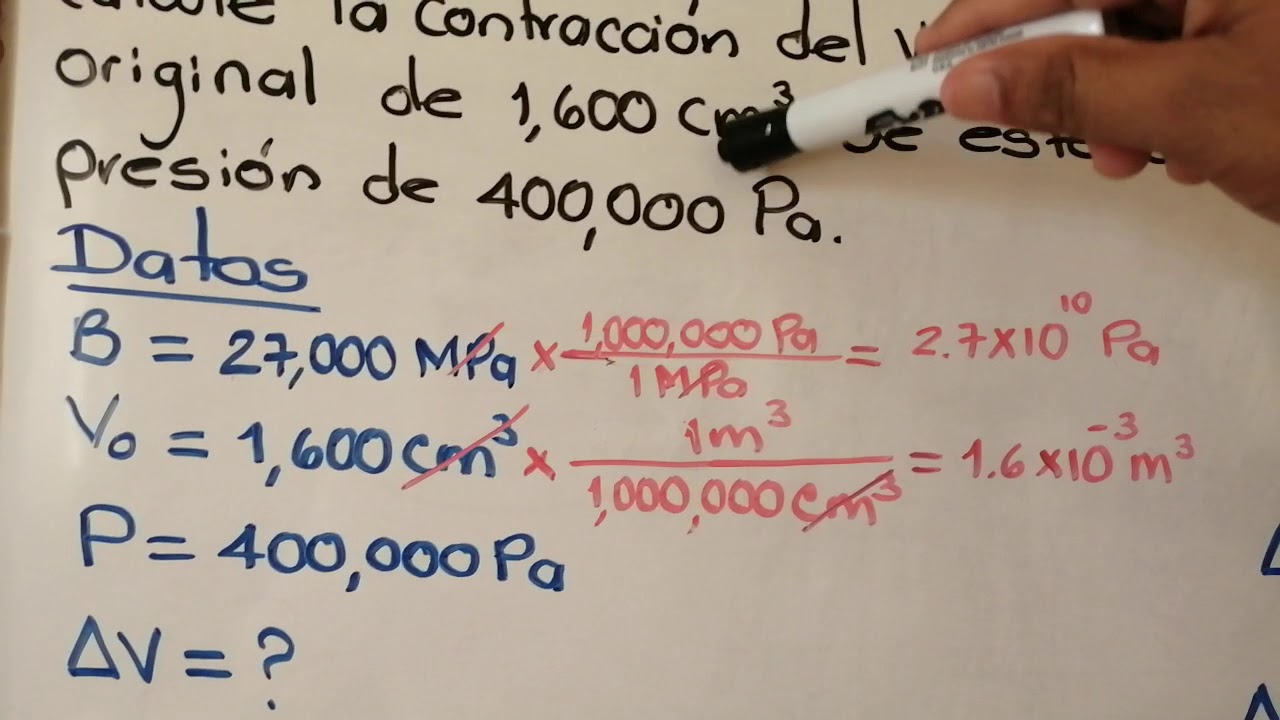 la contracción del
original de 1,600 cm³ se
presión de 400,000 Pa.
Datos
B = 27,000 MPa × 1,000,000 Pa / 1 MPa = 2.7×10¹⁰ Pa
V₀ = 1,600 cm³ × 1m³ / 1,000,000 cm³ = 1.6×10⁻³ m³
P = 400,000 Pa
ΔV = ?